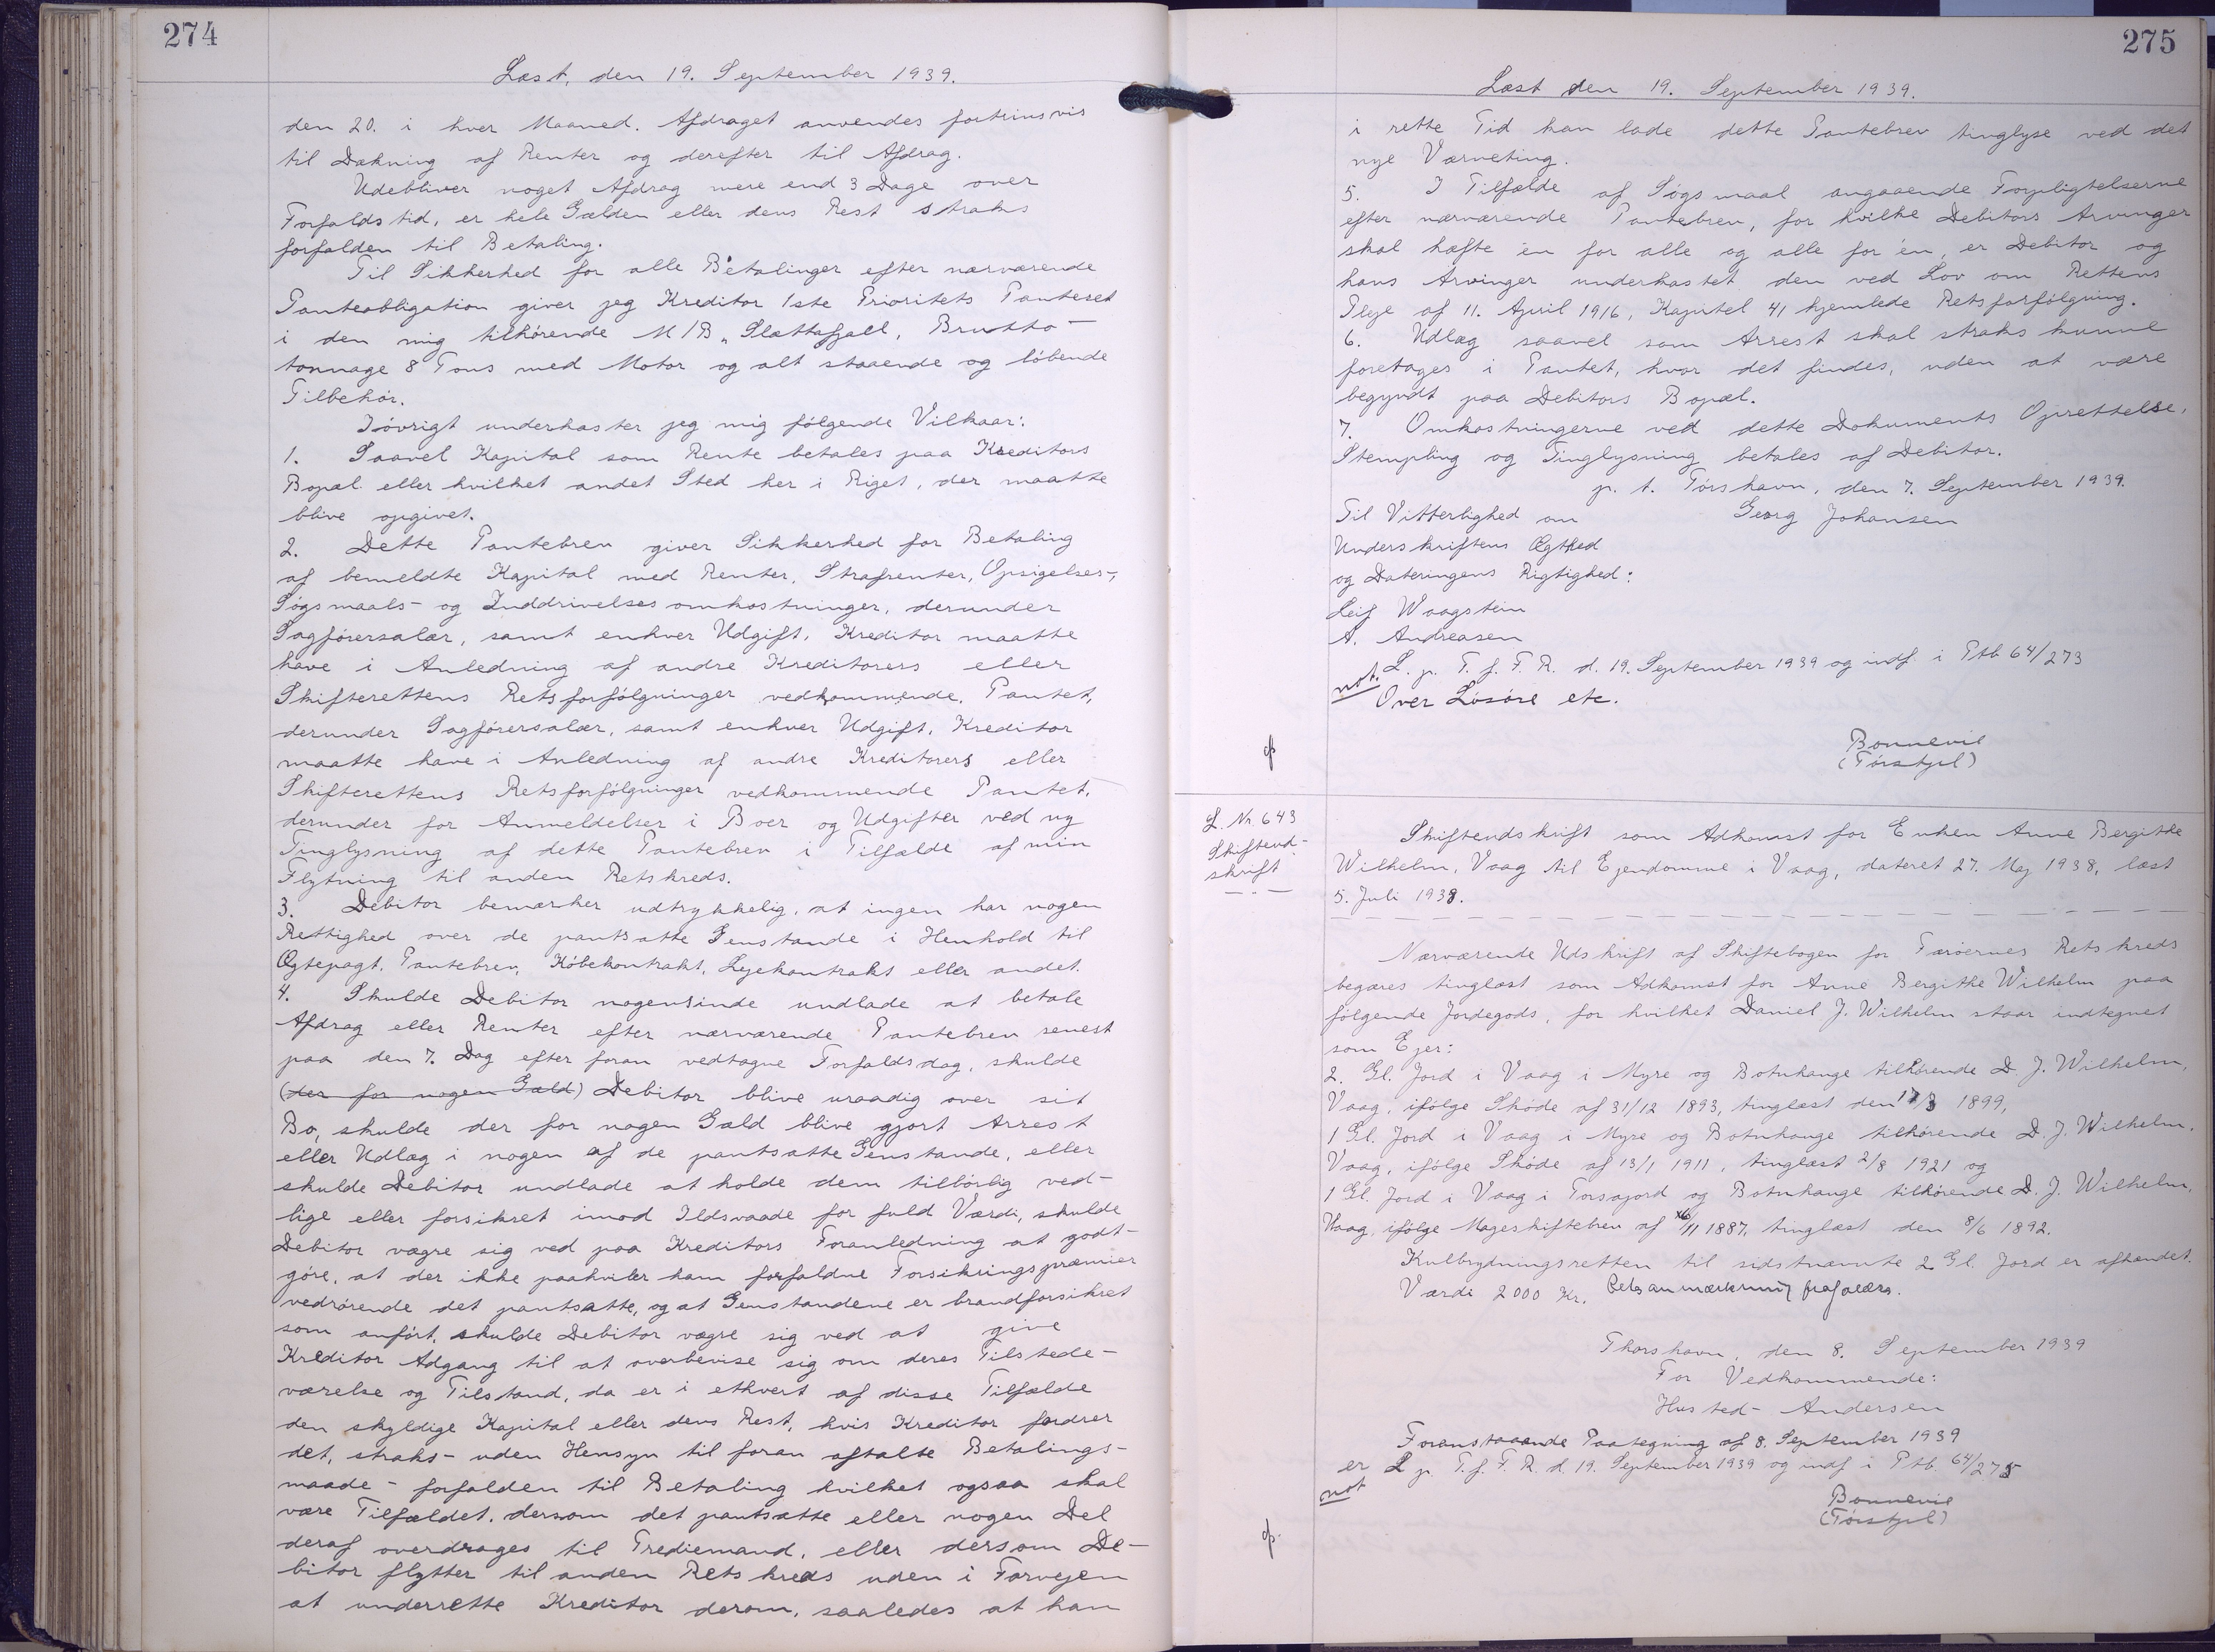 274
Læst, den 19. September 1939.
den 20. i hver Maaned. Afdraget anvendes fortrinsvis
til Dækning af Renter og derefter til Afdrag.
Udebliver noget Afdrag mere end 3 Dage over
Forfaldstid, er hele Gælden eller dens Rest straks
forfalden til Betaling.
Til Sikkerhed for alle Betalinger efter nærværende
Panteobligation giver jeg Kreditor 1ste Prioritets Panteret
i den mig tilhørende M/B „Slættafjall, Brutto-
tonnage 8 Tons med Motor og alt staaende og løbende
Tilbehør.
Iøvrigt underkaster jeg mig følgende Vilkaar:
1. Saavel Kapital som Rente betales paa Kreditors
Bopæl eller hvilket andet Sted her i Riget, der maatte
blive opgivet.
2. Dette Pantebrev giver Sikkerhed for Betaling
af bemeldte Kapital med Renter, Strafrenter, Opsigelses-,
Søgsmaals- og Inddrivelsesomkostninger, derunder
Sagførersalær, samt enhver Udgift, Kreditor maatte
have i Anledning af andre Kreditorers eller
Skifterettens Retsforfølgninger vedkommende, Pantet,
derunder Sagførersalær, samt enhver Udgift, Kreditor
maatte have i Anledning af andre Kreditorers eller
Skifterettens Retsforfølgninger vedkommende Pantet,
derunder for Anmeldelser i Boer og Udgifter ved ny
Tinglysning af dette Pantebrev i Tilfælde af min
Flytning til anden Retskreds.
3. Debitor bemærker udtrykkelig, at ingen har nogen
Rettighed over de pantsatte Genstande i Henhold til
Ægtepagt, Pantebrev, Købekontrakt, Lejekontrakt eller andet.
4. Skulde Debitor nogensinde undlade at betale
Afdrag eller Renter efter nærværende Pantebrev senest
paa den 7. Dag efter foran vedtagne Forfaldsdag, skulde
(der for nogen Gæld) Debitor blive uraadig over sit
Bo, skulde der for nogen Gæld blive gjort Arrest
eller Udlæg i nogen af de pantsatte Genstande, eller
skulde Debitor undlade at holde dem tilbørlig ved-
lige eller forsikret imod Ildsvaade for fuld Værdi, skulde
Debitor vægre sig ved paa Kreditors Foranledning at godt-
gøre, at der ikke paahviler ham forfaldne Forsikringspræmier
vedrørende det pantsatte, og at Genstandene er brandforsikret
som anført, skulde Debitor vægre sig ved at give
Kreditor Adgang til at overbevise sig om deres Tilstede-
værelse og Tilstand, da er i ethvert af disse Tilfælde
den skyldige Kapital eller dens Rest, hvis Kreditor fordrer
det, straks- uden Hensyn til foran aftalte Betalings-
maade - forfalden til Betaling hvilket ogsaa skal
være Tilfældet, dersom det pantsatte eller nogen Del
deraf overdrages til Trediemand, eller dersom De-
bitor flytter til anden Retskreds uden i Forvejen
at underrette Kreditor derom, saaledes at han
275
Læst den 19. September 1939.
i rette Tid kan lade dette Pantebrev tinglyse ved det
nye Værneting.
5. I Tilfælde af Søgsmaal angaaende Forpligtelserne
efter nærværende Pantebrev, for hvilke Debitors Arvinger
skal hæfte en for alle og alle for én, er Debitor og
hans Arvinger underkastet den ved Lov om Rettens
Pleje af 11. April 1916, Kapitel 41 hjemlede Retsforfølgning.
6. Udlæg saavel som Arrest skal straks kunne
foretages i Pantet, hvor det findes, uden at være
begyndt paa Debitors Bopæl.
7. Omkostningerne ved dette Dokuments Oprettelse,
Stempling og Tinglysning betales af Debitor.
p. t. Tórshavn, den 7. September 1939.
Til Vitterlighed om Georg Johansen
Underskriftens Ægthed
og Dateringens Rigtighed:
Leif Waagstein
A. Andreasen
L. p. T. f. F. R. d. 19. September 1939 og indf. i Ptb 64/273
not. Over Løsøre etc.
Bonnevie
L. Nr. 643
Skifteud-
skrift
Skifteudskrift som Adkomst for Enken Anne Bergithe
Wilhelm, Vaag til Ejendomme i Vaag, dateret 27. Maj 1938, læst
5. Juli 1938.
Nærværende Udskrift af Skiftebogen for Færøernes Retskreds
begæres tinglæst som Adkomst for Anne Bergithe Wilhelm paa
følgende Jordegods, for hvilket Daniel J. Wilhelm staar indtegnet
som Ejer:
2. Gl. Jord i Vaag i Myre og Botnhange tilhørende D. J. Wilhelm,
Vaag, ifølge Skøde af 31/12 1893, tinglæst den 1899,
1 Gl. Jord i Vaag i Myre og Botnhange tilhørende D. J. Wilhelm,
Vaag, ifølge Skøde af 13/1 1911, tinglæst 2/8 1921 og
1 Gl. Jord i Vaag i Torsajord og Botnhange tilhørende D. J. Wilhelm,
Vaag, ifølge Mageskiftebrev af 1887, tinglæst den 8/6 1892.
Kulbrydningsretten til sidstnævnte 2 Gl. Jord er afhændet.
Værdi 2000 Kr. Retsanmærkning frafaldes.
Thorshavn, den 8. September 1939
For Vedkommende:
Husted-Andersen
Foranstaaende Paategning af 8. September 1939
er L p. T. f. F. R. d. 19. September 1939 og indf i Ptb. 64/275
not
Bonnevie